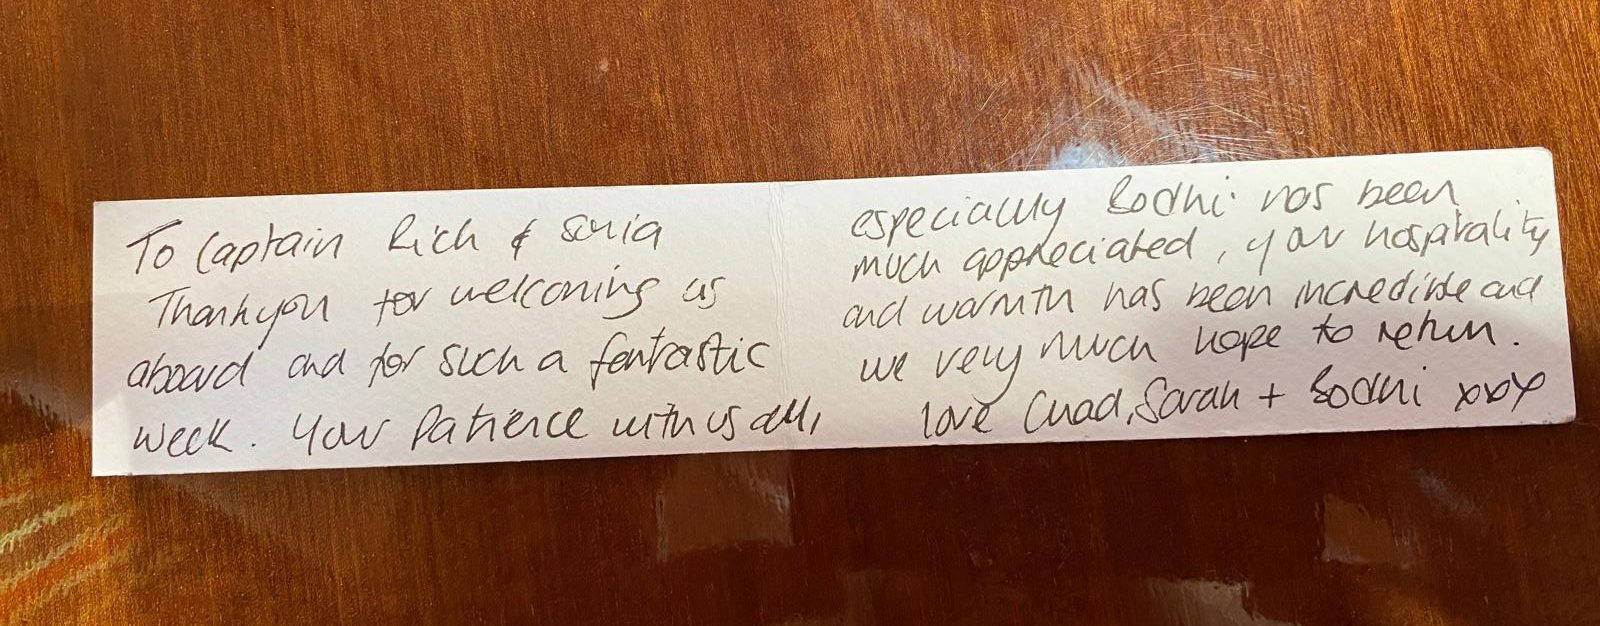 To Captain Rich & Sonia
Thankyou for welcoming us
aboard and for such a fantastic
week. Your Patience with us all,
especially Bodhi has been
much appreciated, your hospitality
and warmth has been incredible and
we very much hope to return.
love Chad, Sarah + Bodhi xxx